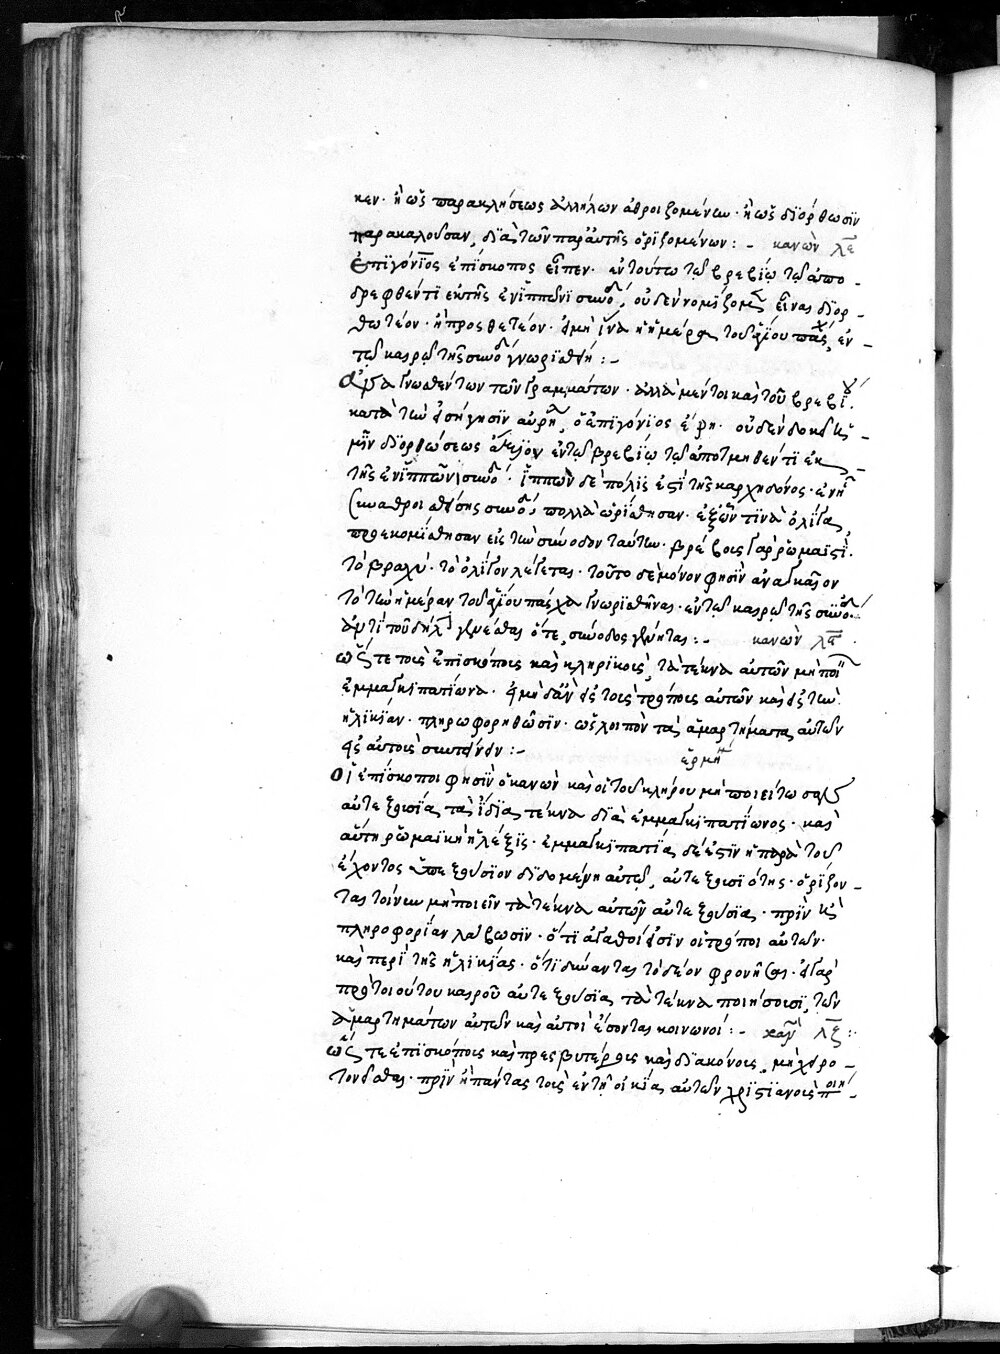 κεν· ἢ ὡς παρακλήσεως ἀλλήλων ἀθροιζομένων· ἢ ὡς διόρθωσιν
παρακαλοῦσαν, διὰ τῶν παρ' αὐτῆς ὁριζομένων :- κανὼν λε
Ἐπιγόνιος ἐπίσκοπος εἶπεν· ἐν τούτω τῷ βρεβίῳ τῷ ἀπο-
δρεφθέντι ἐκ τῆς ἐν ἵππωνι συνόδ, οὐδὲν νομίζομεν εἶναι διορ-
θωτέον· ἢ προσθετέον· εἰ μὴ ἵνα ἡ ἡμέρα τοῦ ἁγίου πάσχ, ἐν-
τῷ καιρῷ τῆς συνόδ γνωρισθῆ :-
Ἀναγνωσθέντων τῶν γραμμάτων· ἀλλὰ μέντοι καὶ τοῦ βρεβίου·
κατὰ τὴν εἰσήγησιν αὐρηλ, ὁ ἐπιγόνιος ἔφη· οὐδὲν δοκεῖ
μὲν διορθώσεως ἄξιον ἐν τῷ βρεβίῳ τῷ ἀποτμηθέντι ἐκ
τῆς ἐν ἵππωνι συνόδ· ἵππων δὲ πόλις ἐστὶ τῆς καρχηδόνος· ἐν ᾗ
συναθροισθείσης συνόδ πολλὰ ὡρίσθησαν· ἐξ ὧν τινὰ ὀλίγα,
προεκομίσθησαν εἰς τὴν σύνοδον ταύτην· βρέβοις γὰρ ῥωμαϊστὶ,
τὸ βραχὺ· τὸ ὀλίγον λέγεται· τοῦτο δὲ μόνον φησὶν ἀναγκαῖον
τὸ τὴν ἡμέραν τοῦ ἁγίου πάσχα γνωρισθῆναι· ἐν τῷ καιρῷ τῆς συνόδ·
ἀντὶ τοῦ δηλ γενέσθαι ὅτε, σύνοδος γένηται :- κανὼν λϛ
Ὥστε τοῖς ἐπισκόποις καὶ κληρικοῖς, τὰ τέκνα αὐτῶν μὴ ποι
ἐμμαγκιπατίωνα· εἰ μὴ ἐὰν εἰς τοῖς τρόποις αὐτῶν καὶ εἰς τὴν
ἡλικίαν· πληροφορηθῶσιν· ὡς λοιπὸν τὰ ἁμαρτήματα αὐτῶν
εἰς αὐτοὺς συντείνειν :- ἑρμη
Οἱ ἐπίσκοποι φησὶν ὁ κανὼν καὶ οἱ τοῦ κλήρου μὴ ποιείτωσαν
αὐτεξουσία τὰ ἴδια τέκνα διὰ ἐμμαγκιπατίωνος· καὶ
αὕτη ῥωμαϊκὴ ἡ λέξις· ἐμμαγκιπατία δέ ἐστιν ἡ παρὰ τοῦ
ἔχοντος ὑπεξούσιον διδομένη αὐτῷ, αὐτεξουσιότης· ὁρίζον-
ται τοίνυν μὴ ποιεῖν τὰ τέκνα αὐτῶν αὐτεξούσια· πρὶν
πληροφορίαν λάβωσιν· ὅτι ἀγαθοί εἰσιν οἱ τρόποι αὐτῶν·
καὶ περὶ τῆς ἡλικίας· ὅτι δύνανται τὸ δέον φρονῆσαι· εἰ γὰρ
πρὸ τοιούτου καιροῦ αὐτεξούσια τὰ τέκνα ποιήσουσι, τῶν
ἁμαρτημάτων αὐτῶν καὶ αὐτοὶ ἔσονται κοινωνοί :- κανὼν λζ :-
Ὥστε ἐπισκόπους καὶ πρεσβυτέρους καὶ διακόνους, μὴ χειρο-
τονεῖσθαι· πρὶν ἢ πάντας τοὺς ἐν τῆ οἰκία αὐτῶν χριστιανοὺς ποιή-